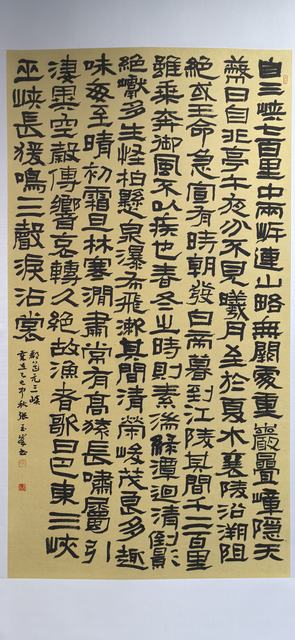 自三峽七百里中兩岸連山略無闕處重巖疊嶂隱天
蔽日自非亭午夜分不見曦月至於夏水襄陵沿溯阻
絕或王命急宣有時朝發白帝暮到江陵其間千二百里
雖乘奔御風不以疾也春冬之時則素湍綠潭迴清倒影
絕巘多生怪柏懸泉瀑布飛漱其間清榮峻茂良多趣
味每至晴初霜旦林寒澗肅常有高猿長嘯屬引
淒異空穀傳響哀轉久絕故漁者歌曰巴東三峽
巫峽長猿鳴三聲淚沾裳
酈道元三峽
乙巳仲秋張玉峰書